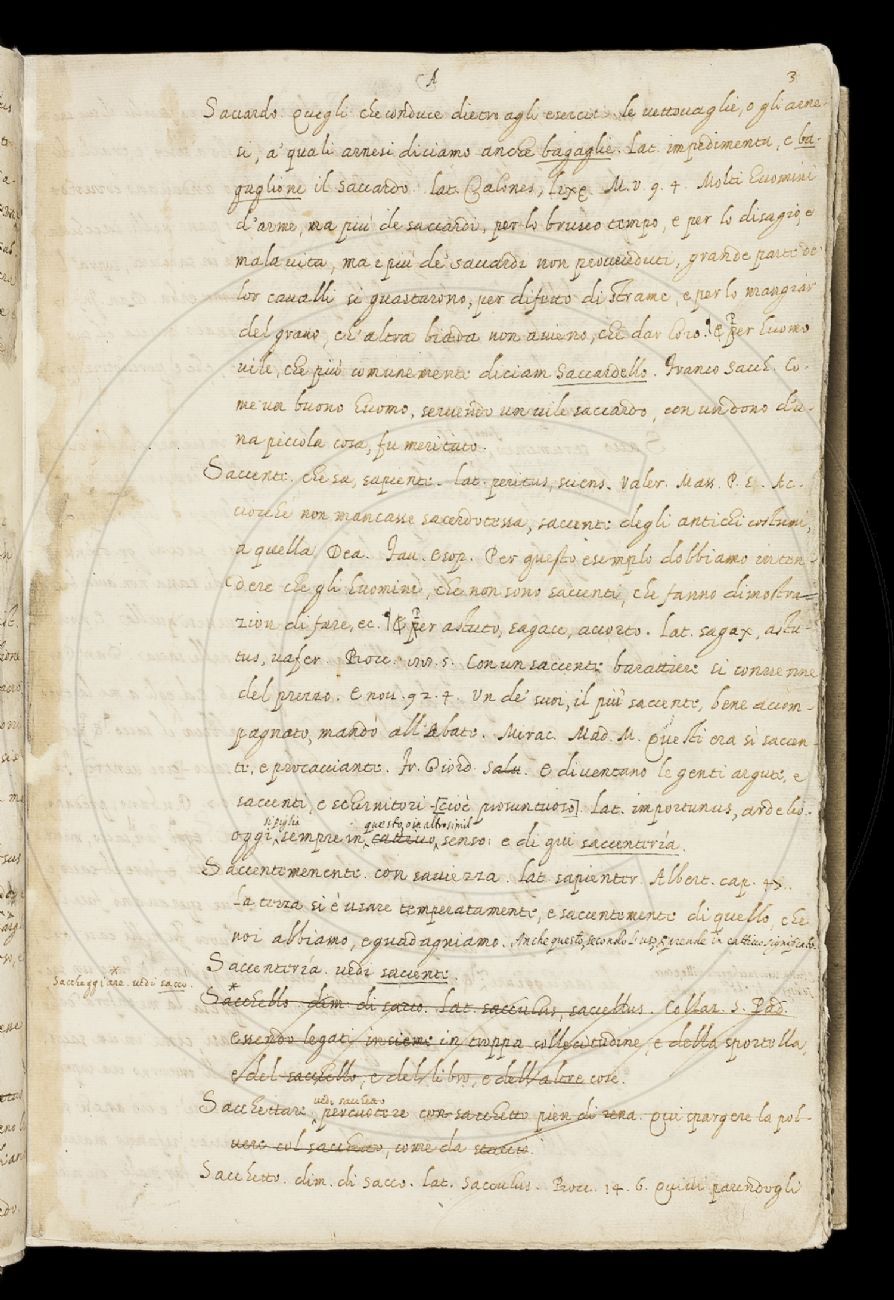 A 3
Saccardo. Quegli che conduce dietro agli eserciti le vettovaglie, o gli arne-
si, a' quali arnesi diciamo anche bagaglie. Lat. impedimenta, e ba-
gaglione il saccardo. lat. Calones, lixę. M. v. 9. 4. Molti huomini
d'arme, ma più de saccardi, per lo brusco tempo, e per lo disagio, e
mala vita, ma e più de' saccardi non proveduti, grande parte de'
lor cavalli si guastarono, per difetto di strame, e per lo mangiar
del grano, ch' altra biada non avieno, che dar loro. ¶ E per huomo
vile, che più comunemente diciam Saccardello. Franco Sacch. Co-
me un buono huomo, servendo un vile saccardo, con un dono d'u-
na piccola cosa, fu meritato.
Saccente. che sa, sapiente. lat. peritus, sciens. Valer. Mass. P. S. Ac-
ciocche non mancasse sacerdotessa, saccente degli antichi costumi,
a quella Dea. Fav. Esop. Per questo esemplo dobbiamo inten-
dere che gli huomini, che non sono saccenti, che fanno dimostra-
zion di fare, ec. ¶ E per astuto, sagace, accorto. Lat. sagax, astu-
tus, vafer. Bocc. nov. 5. Con un saccente barattiere si convenne
del prezzo. E nov. 92. 4. Un de' suoi, il più saccente, bene accom-
pagnato, mandò all' Abate. Mirac. Mad. M. Questi era sì saccen-
te, e procacciante. Fr. Giord. Salv. E diventano le genti argute, e
saccenti, e schernitori [cioè prosuntuoso]. lat. importunus, ardelio.
si piglia questo, o in altro simil
oggi sempre in cattivo senso: e di qui saccenteria.
Saccentemenente. con saviezza. lat. sapienter. Albert. cap. 47.
La terza si è usare temperatamente, e saccentemente di quello, che
noi abbiamo, e guadagniamo. Anche questo, secondo l'uso, si prende in cattivo significato.
Saccenterìa. vedi saccente.
Saccheggiare. vedi sacco.
Sacchello. dim. di sacco. Lat. sacculus, saccellus. Collaz. S. Pad.
essendo legati insieme in troppa sollecitudine, e della sportella,
e del sacchello, e del libro, e dell'altre cose.
vedi sacchetto
Sacchettare, percuotere con sacchetto pien di rena. Qui spargere la pol-
vere col sacchetto, come da staccio.
Sacchetto. dim. di sacco. lat. sacculus. Bocc. 14. 6. Quivi parendogli